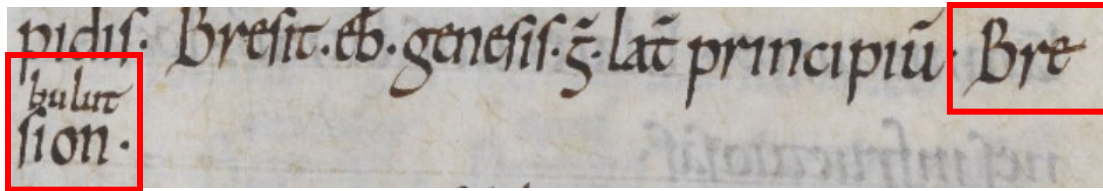 pidis. Bresit. eb̄. genesis. ḡ. lat̄ principiū. Bre
bulut
sion.